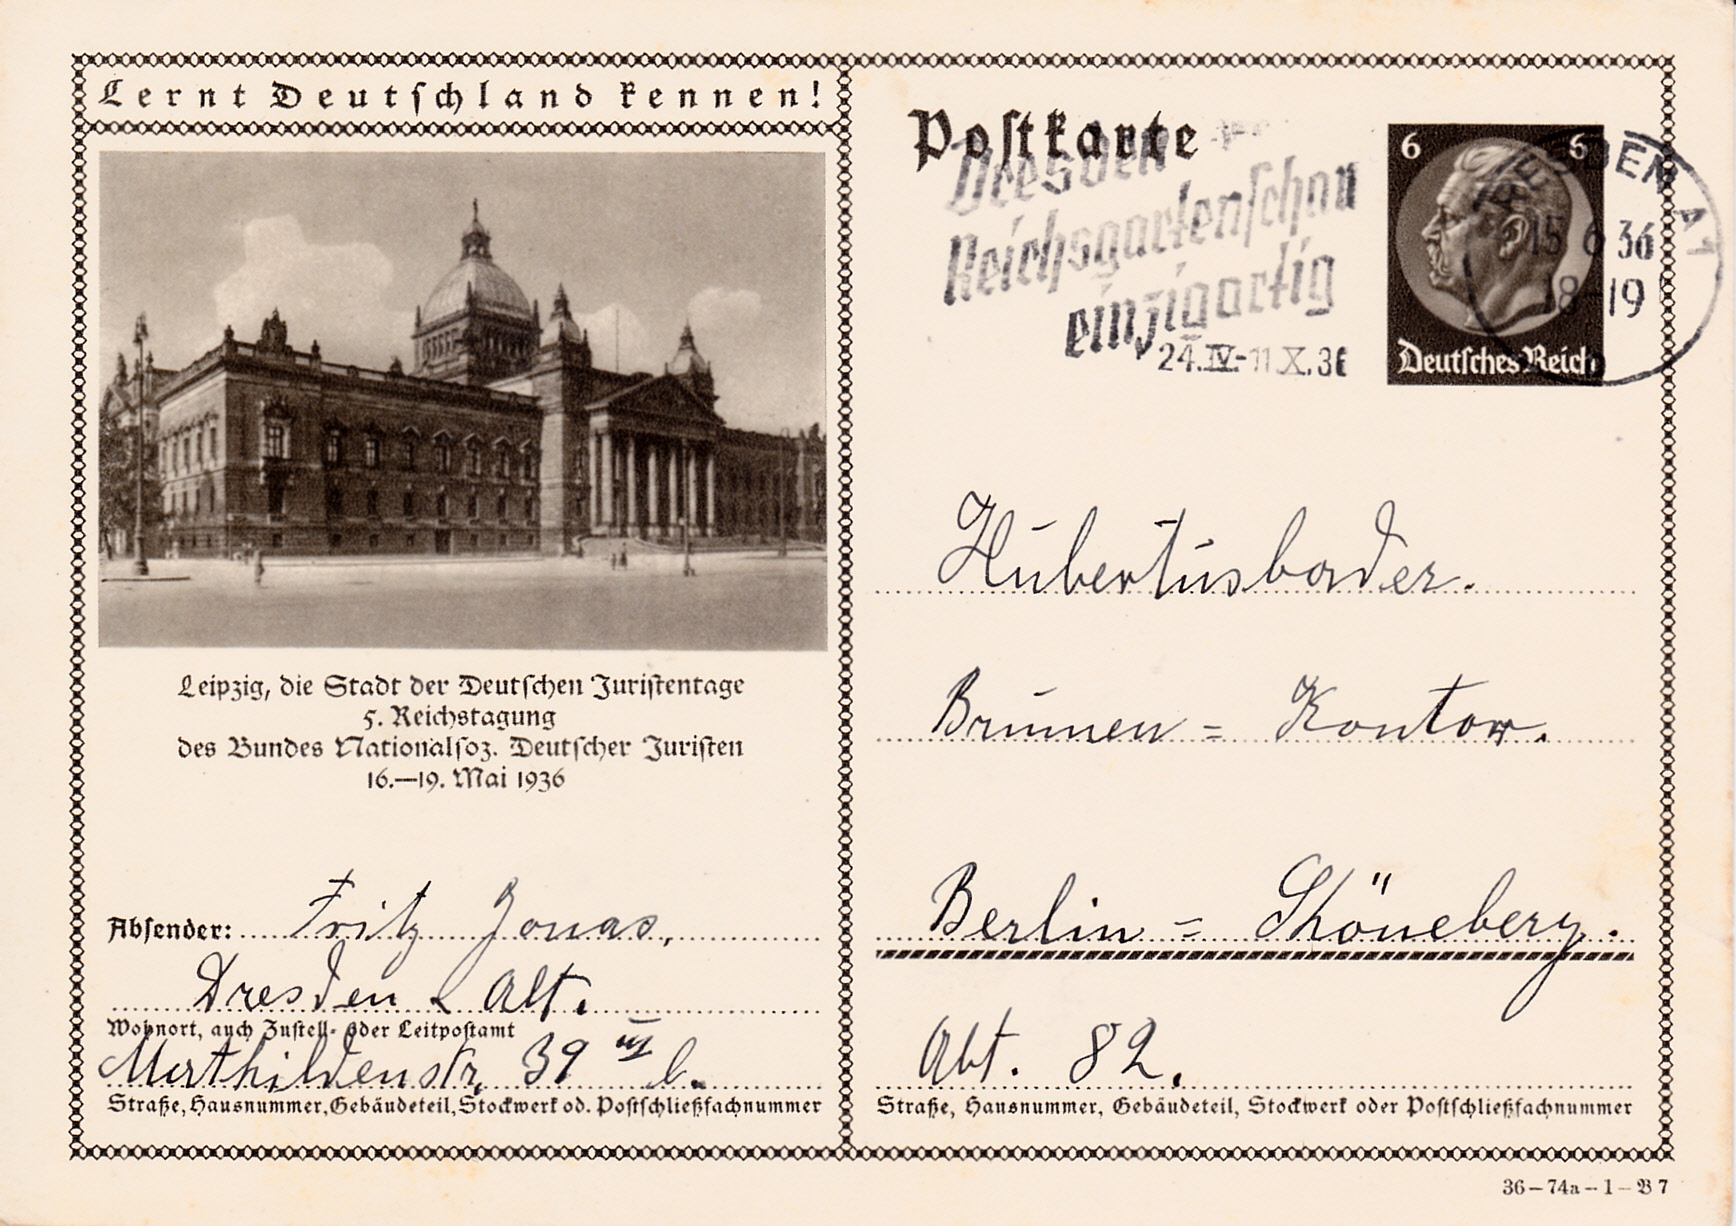 Lernt Deutschland kennen!
Leipzig, die Stadt der Deutschen Juristentage
5. Reichstagung
des Bundes Nationalsoz. Deutscher Juristen
16.—19. Mai 1936
Absender: Fritz Jonas,
Dresden Alt.
Wohnort, auch Zustell- oder Leitpostamt
Mathildenstr. 39 III l.
Straße, Hausnummer, Gebäudeteil, Stockwerk od. Postschließfachnummer
Postkarte
Dresden
Reichsgartenschau
einzigartig
24.IV-11.X.36
6 6
Deutsches Reich
DRESDEN A1
15 6 36
18-19
Hubertusbader.
Brunnen = Kontor.
Berlin = Schöneberg.
Abt. 82.
Straße, Hausnummer, Gebäudeteil, Stockwerk oder Postschließfachnummer
36–74a–1–B7